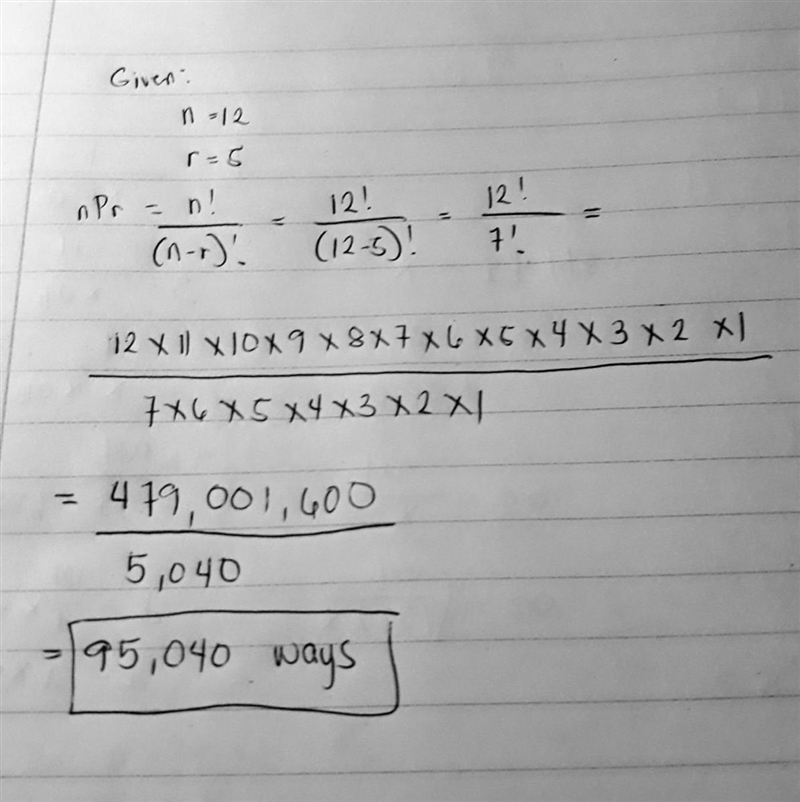 Given:
n = 12
r = 5
nPr = n! / (n-r)! = 12! / (12-5)! = 12! / 7! =
12 × 11 × 10 × 9 × 8 × 7 × 6 × 5 × 4 × 3 × 2 × 1
7 × 6 × 5 × 4 × 3 × 2 × 1
= 479,001,600
5,040
= 95,040 ways